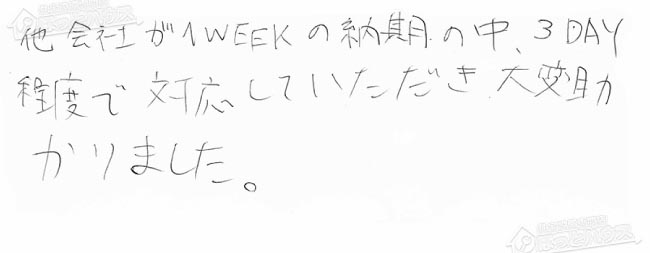 他会社が1WEEKの納期の中、3DAY
程度で対応していただき大変助
かりました。